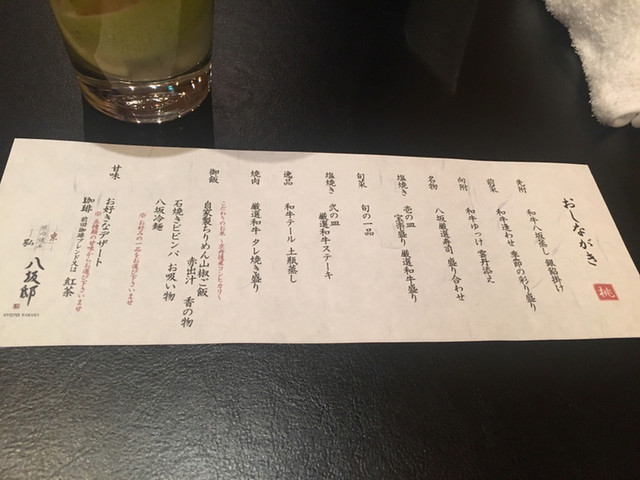 おしながき
桃
先附 和牛八坂蒸し 銀餡掛け
前菜 和牛迷わせ 季節の彩り盛り
向附 和牛ゆっけ 雲丹添え
名物 八坂厳選寿司 盛り合わせ
塩焼き 壱の皿 宝楽盛り 厳選和牛盛り
旬菜 旬の一品
塩焼き 弐の皿 厳選和牛ステーキ
逸品 和牛テール 土瓶蒸し
焼肉 厳選和牛 タレ焼き盛り
御飯
自家製ちりめん山椒ご飯
赤出汁 香の物
石焼きビビンバ お吸い物
八坂冷麺
※お好みの一品をお選び下さいませ
甘味 お好きなデザート
珈琲 前田珈琲ブレンド又は 紅茶
京
弘
八坂邸